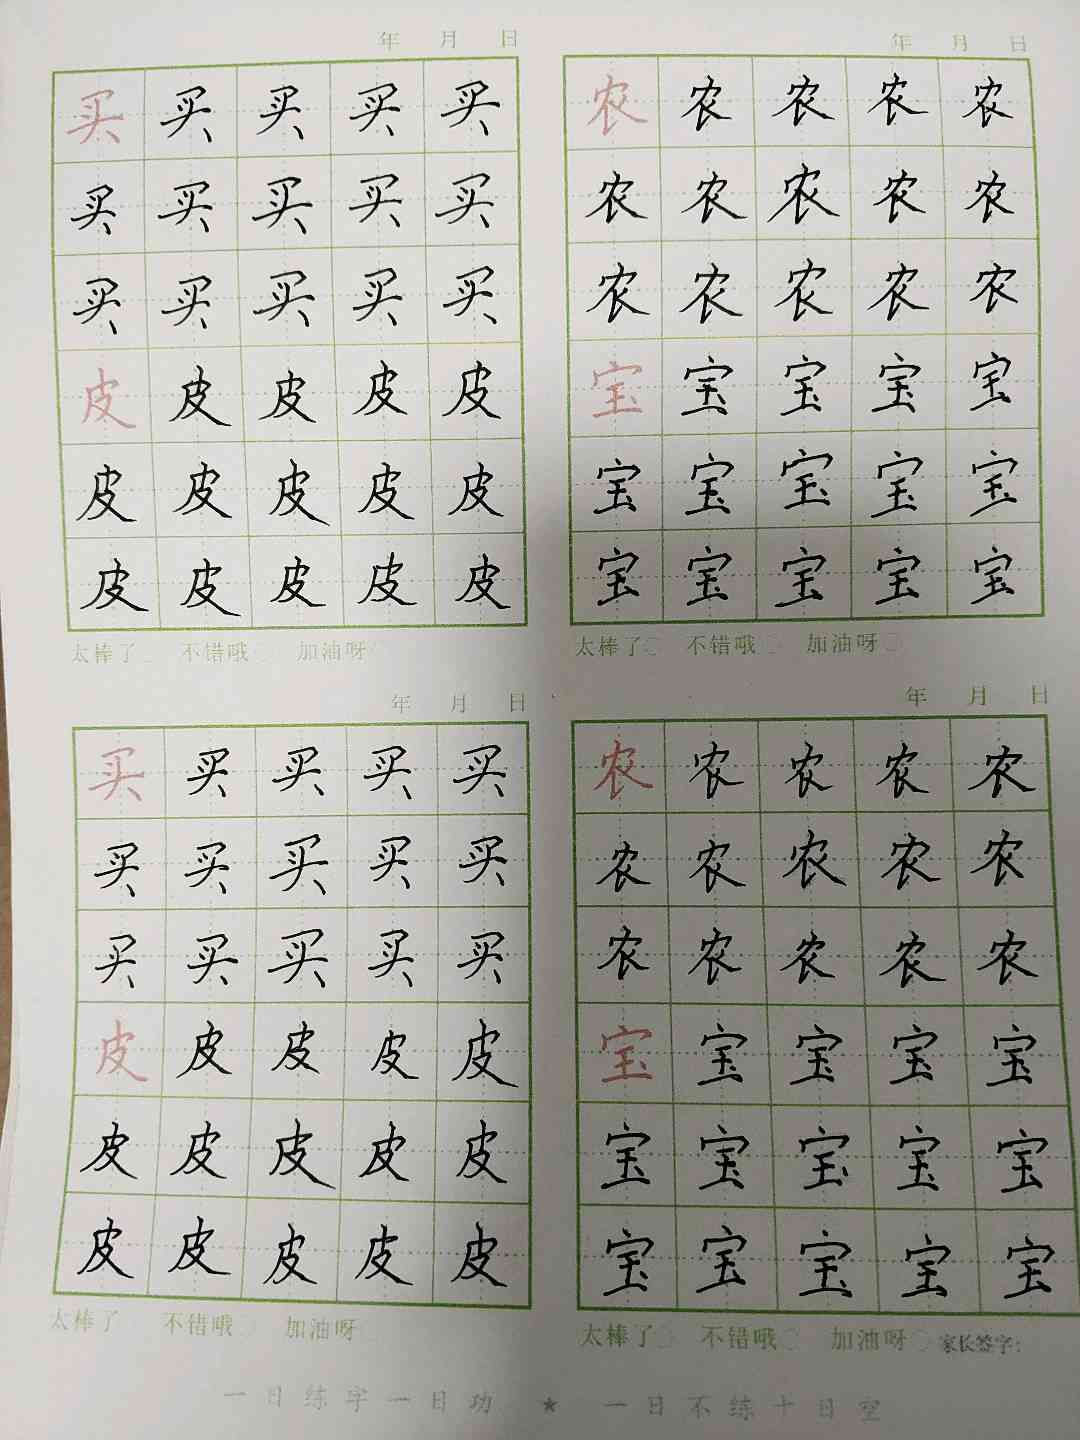 年 月 日
买 买 买 买 买
买 买 买 买 买
买 买 买 买 买
皮 皮 皮 皮 皮
皮 皮 皮 皮 皮
皮 皮 皮 皮 皮
太棒了 不错哦 加油呀
年 月 日
农 农 农 农 农
农 农 农 农 农
农 农 农 农 农
宝 宝 宝 宝 宝
宝 宝 宝 宝 宝
宝 宝 宝 宝 宝
太棒了 不错哦 加油呀
年 月 日
买 买 买 买 买
买 买 买 买 买
买 买 买 买 买
皮 皮 皮 皮 皮
皮 皮 皮 皮 皮
皮 皮 皮 皮 皮
太棒了 不错哦 加油呀
年 月 日
农 农 农 农 农
农 农 农 农 农
农 农 农 农 农
宝 宝 宝 宝 宝
宝 宝 宝 宝 宝
宝 宝 宝 宝 宝
太棒了 不错哦 加油呀 家长签字:
一日练字一日功 ★ 一日不练十日空